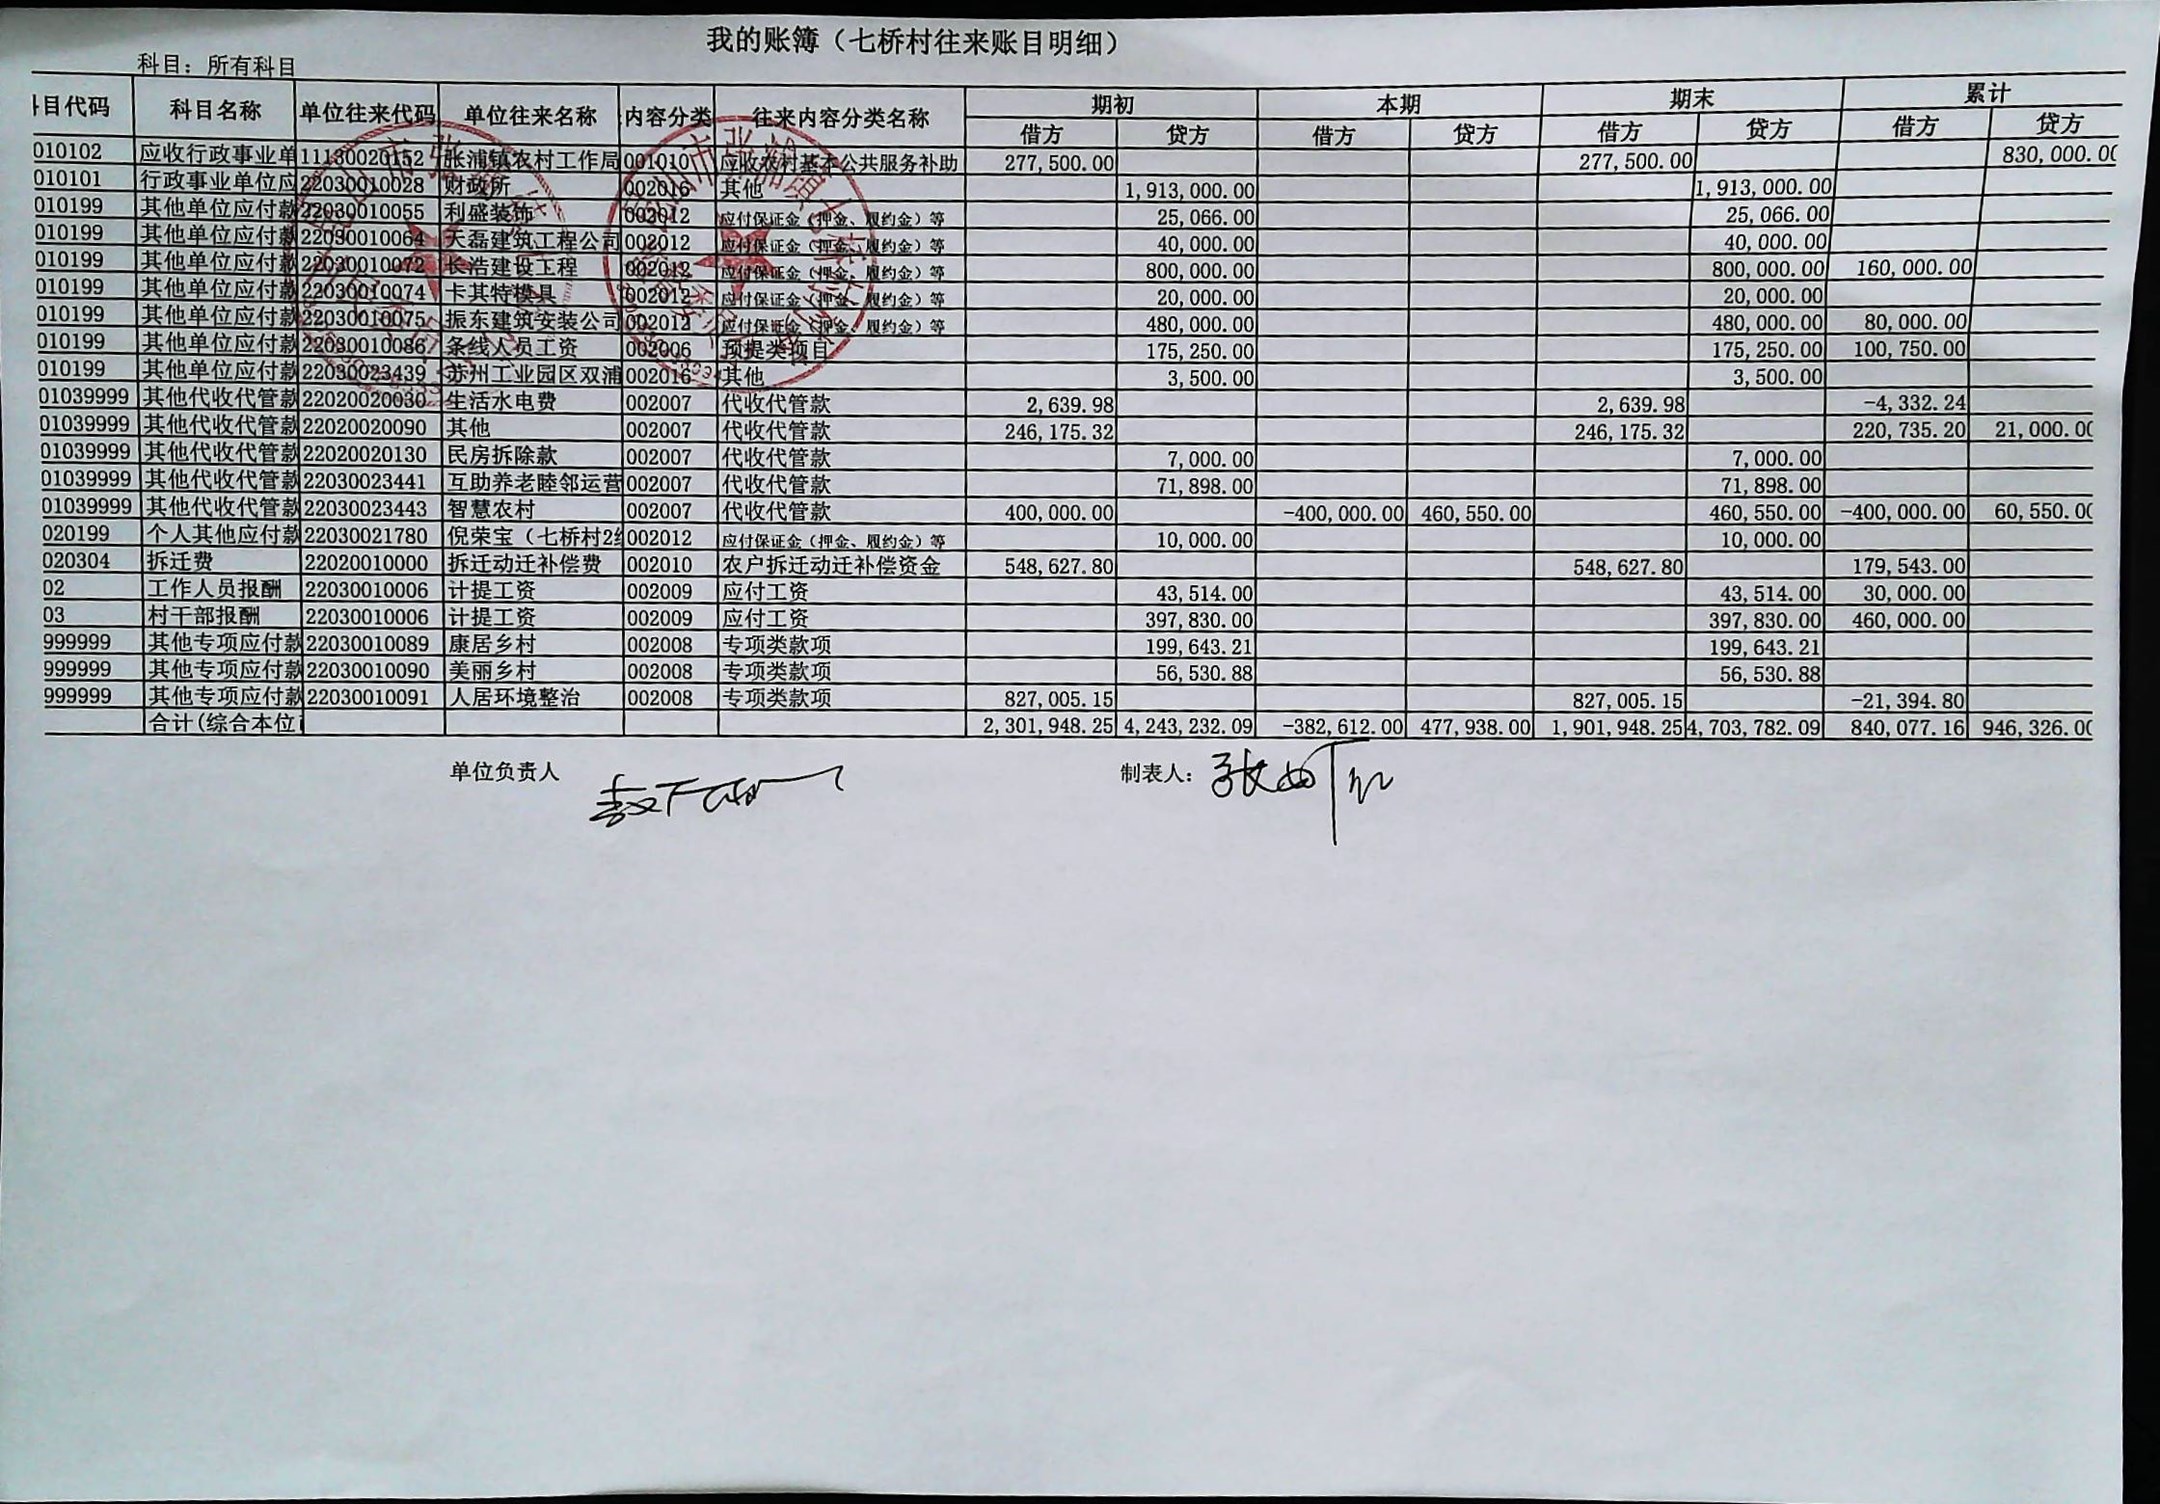 我的账簿（七桥村往来账目明细）
科目：所有科目
目代码 科目名称 单位往来代码 单位往来名称 内容分类 往来内容分类名称 期初 本期 期末 累计
借方 贷方 借方 贷方 借方 贷方 借方 贷方
010102 应收行政事业单 11130020152 张浦镇农村工作局 001010 应收农村基本公共服务补助 277,500.00 277,500.00 830,000.00
010101 行政事业单位应 22030010028 财政所 002016 其他 1,913,000.00 1,913,000.00
010199 其他单位应付款 22030010055 利盛装饰 002012 应付保证金（押金、履约金）等 25,066.00 25,066.00
010199 其他单位应付款 22030010064 天磊建筑工程公司 002012 应付保证金（押金、履约金）等 40,000.00 40,000.00
010199 其他单位应付款 22030010072 长浩建设工程 002012 应付保证金（押金、履约金）等 800,000.00 800,000.00 160,000.00
010199 其他单位应付款 22030010074 卡其特模具 002012 应付保证金（押金、履约金）等 20,000.00 20,000.00
010199 其他单位应付款 22030010075 振东建筑安装公司 002012 应付保证金（押金、履约金）等 480,000.00 480,000.00 80,000.00
010199 其他单位应付款 22030010086 条线人员工资 002006 预提类项目 175,250.00 175,250.00 100,750.00
010199 其他单位应付款 22030023439 苏州工业园区双浦 002016 其他 3,500.00 3,500.00
01039999 其他代收代管款 22020020030 生活水电费 002007 代收代管款 2,639.98 2,639.98 -4,332.24
01039999 其他代收代管款 22020020090 其他 002007 代收代管款 246,175.32 246,175.32 220,735.20 21,000.00
01039999 其他代收代管款 22020020130 民房拆除款 002007 代收代管款 7,000.00 7,000.00
01039999 其他代收代管款 22030023441 互助养老睦邻运营 002007 代收代管款 71,898.00 71,898.00
01039999 其他代收代管款 22030023443 智慧农村 002007 代收代管款 400,000.00 -400,000.00 460,550.00 460,550.00 -400,000.00 60,550.00
020199 个人其他应付款 22030021780 倪荣宝（七桥村2组 002012 应付保证金（押金、履约金）等 10,000.00 10,000.00
020304 拆迁费 22020010000 拆迁动迁补偿费 002010 农户拆迁动迁补偿资金 548,627.80 548,627.80 179,543.00
02 工作人员报酬 22030010006 计提工资 002009 应付工资 43,514.00 43,514.00 30,000.00
03 村干部报酬 22030010006 计提工资 002009 应付工资 397,830.00 397,830.00 460,000.00
999999 其他专项应付款 22030010089 康居乡村 002008 专项类款项 199,643.21 199,643.21
999999 其他专项应付款 22030010090 美丽乡村 002008 专项类款项 56,530.88 56,530.88
999999 其他专项应付款 22030010091 人居环境整治 002008 专项类款项 827,005.15 827,005.15 -21,394.80
合计(综合本位 2,301,948.25 4,243,232.09 -382,612.00 477,938.00 1,901,948.25 4,703,782.09 840,077.16 946,326.00
单位负责人 制表人：